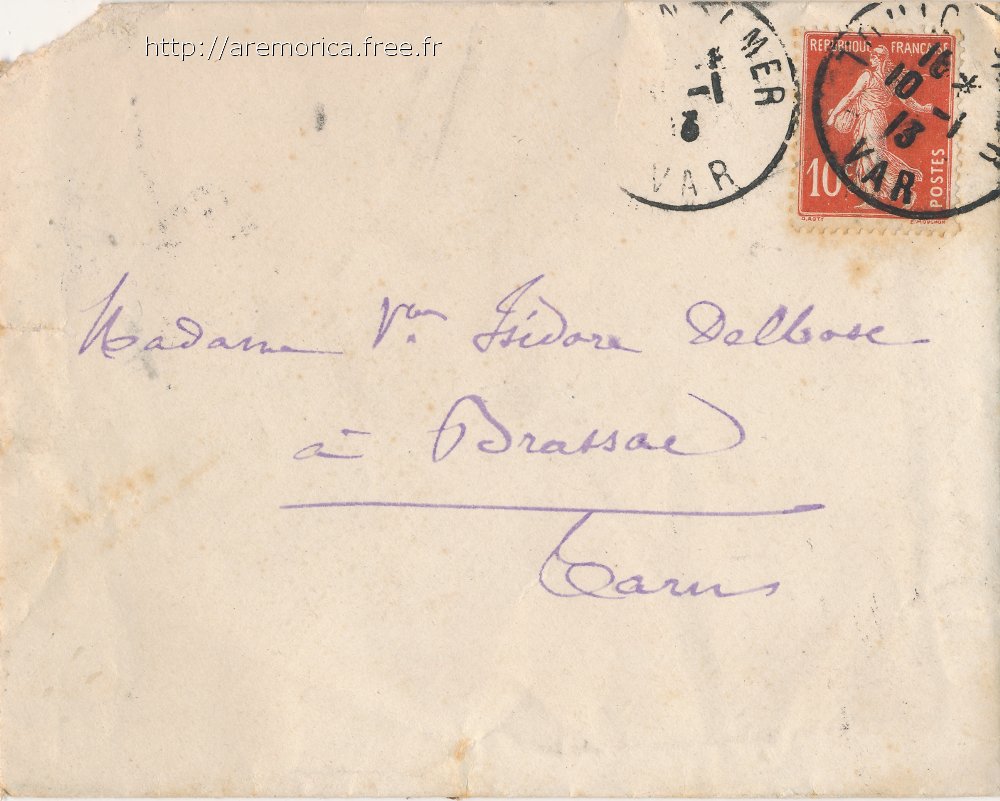 http://aremorica.free.fr
N / MER
1
3
VAR
16 *
10 - 1
13
VAR
REPUBLIQUE FRANÇAISE
10
POSTES
Madame Vve Isidore Delbosc
à Brassac
Tarn